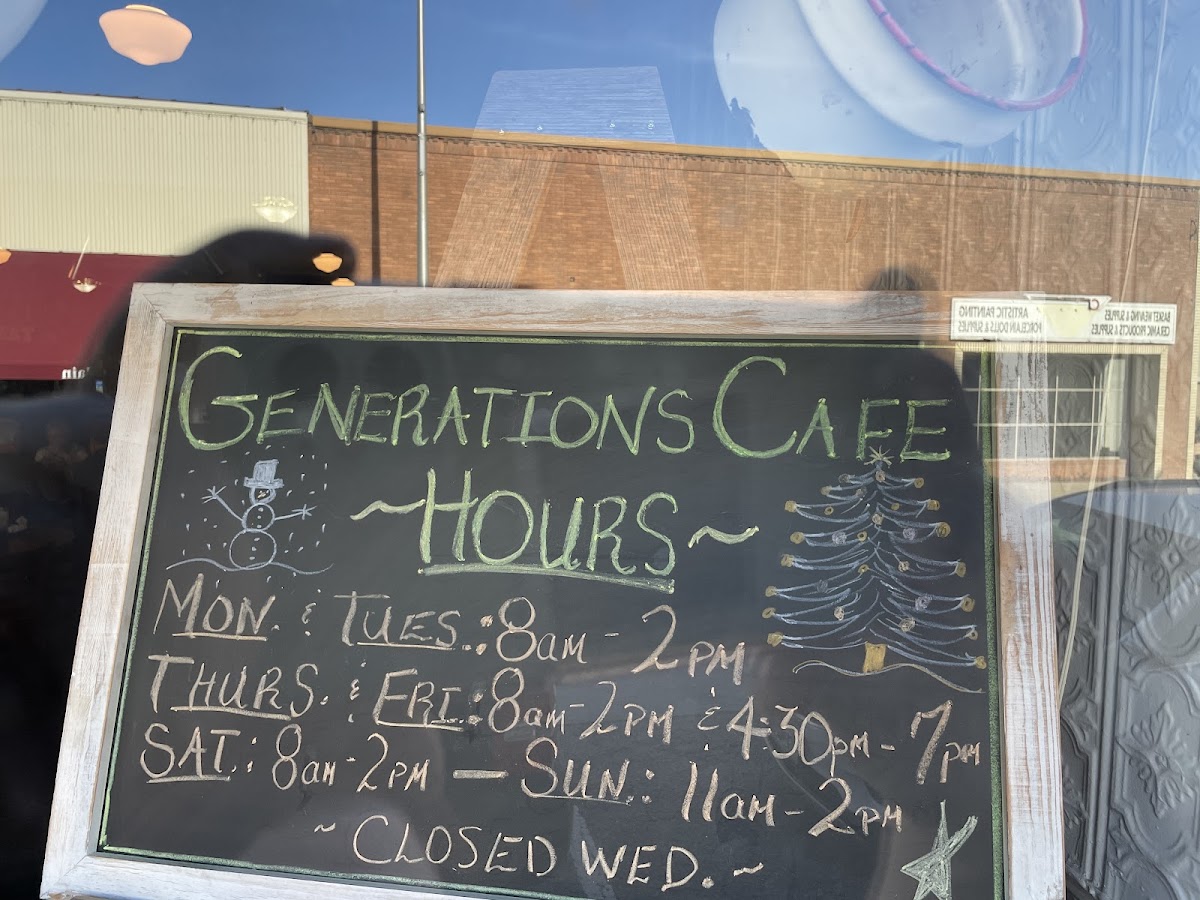 GENERATIONS CAFE
~HOURS~
MON. & TUES.: 8am - 2PM
THURS. & FRI.: 8am - 2PM & 4:30pm - 7pm
SAT.: 8am - 2PM — SUN.: 11am - 2PM
~ CLOSED WED. ~
ARTISTIC PAINTING
PORCELAIN DOLLS & SUPPLIES
BASKET WEAVING & SUPPLIES
CERAMIC PRODUCTS & SUPPLIES